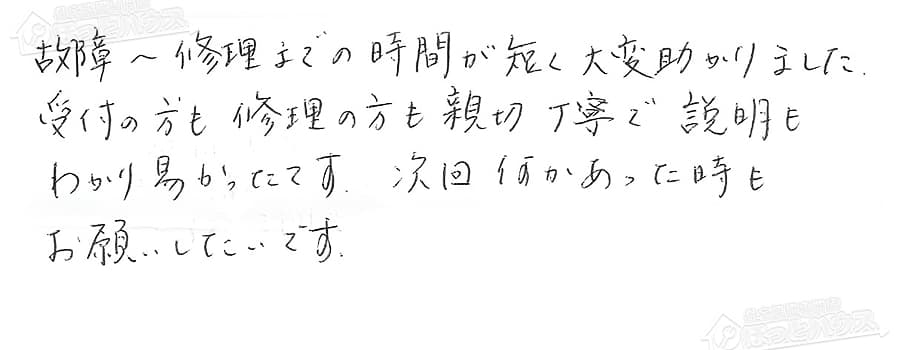 故障～修理までの時間が短く大変助かりました.
受付の方も修理の方も親切丁寧で説明も
わかり易かったです. 次回何かあった時も
お願いしたいです.